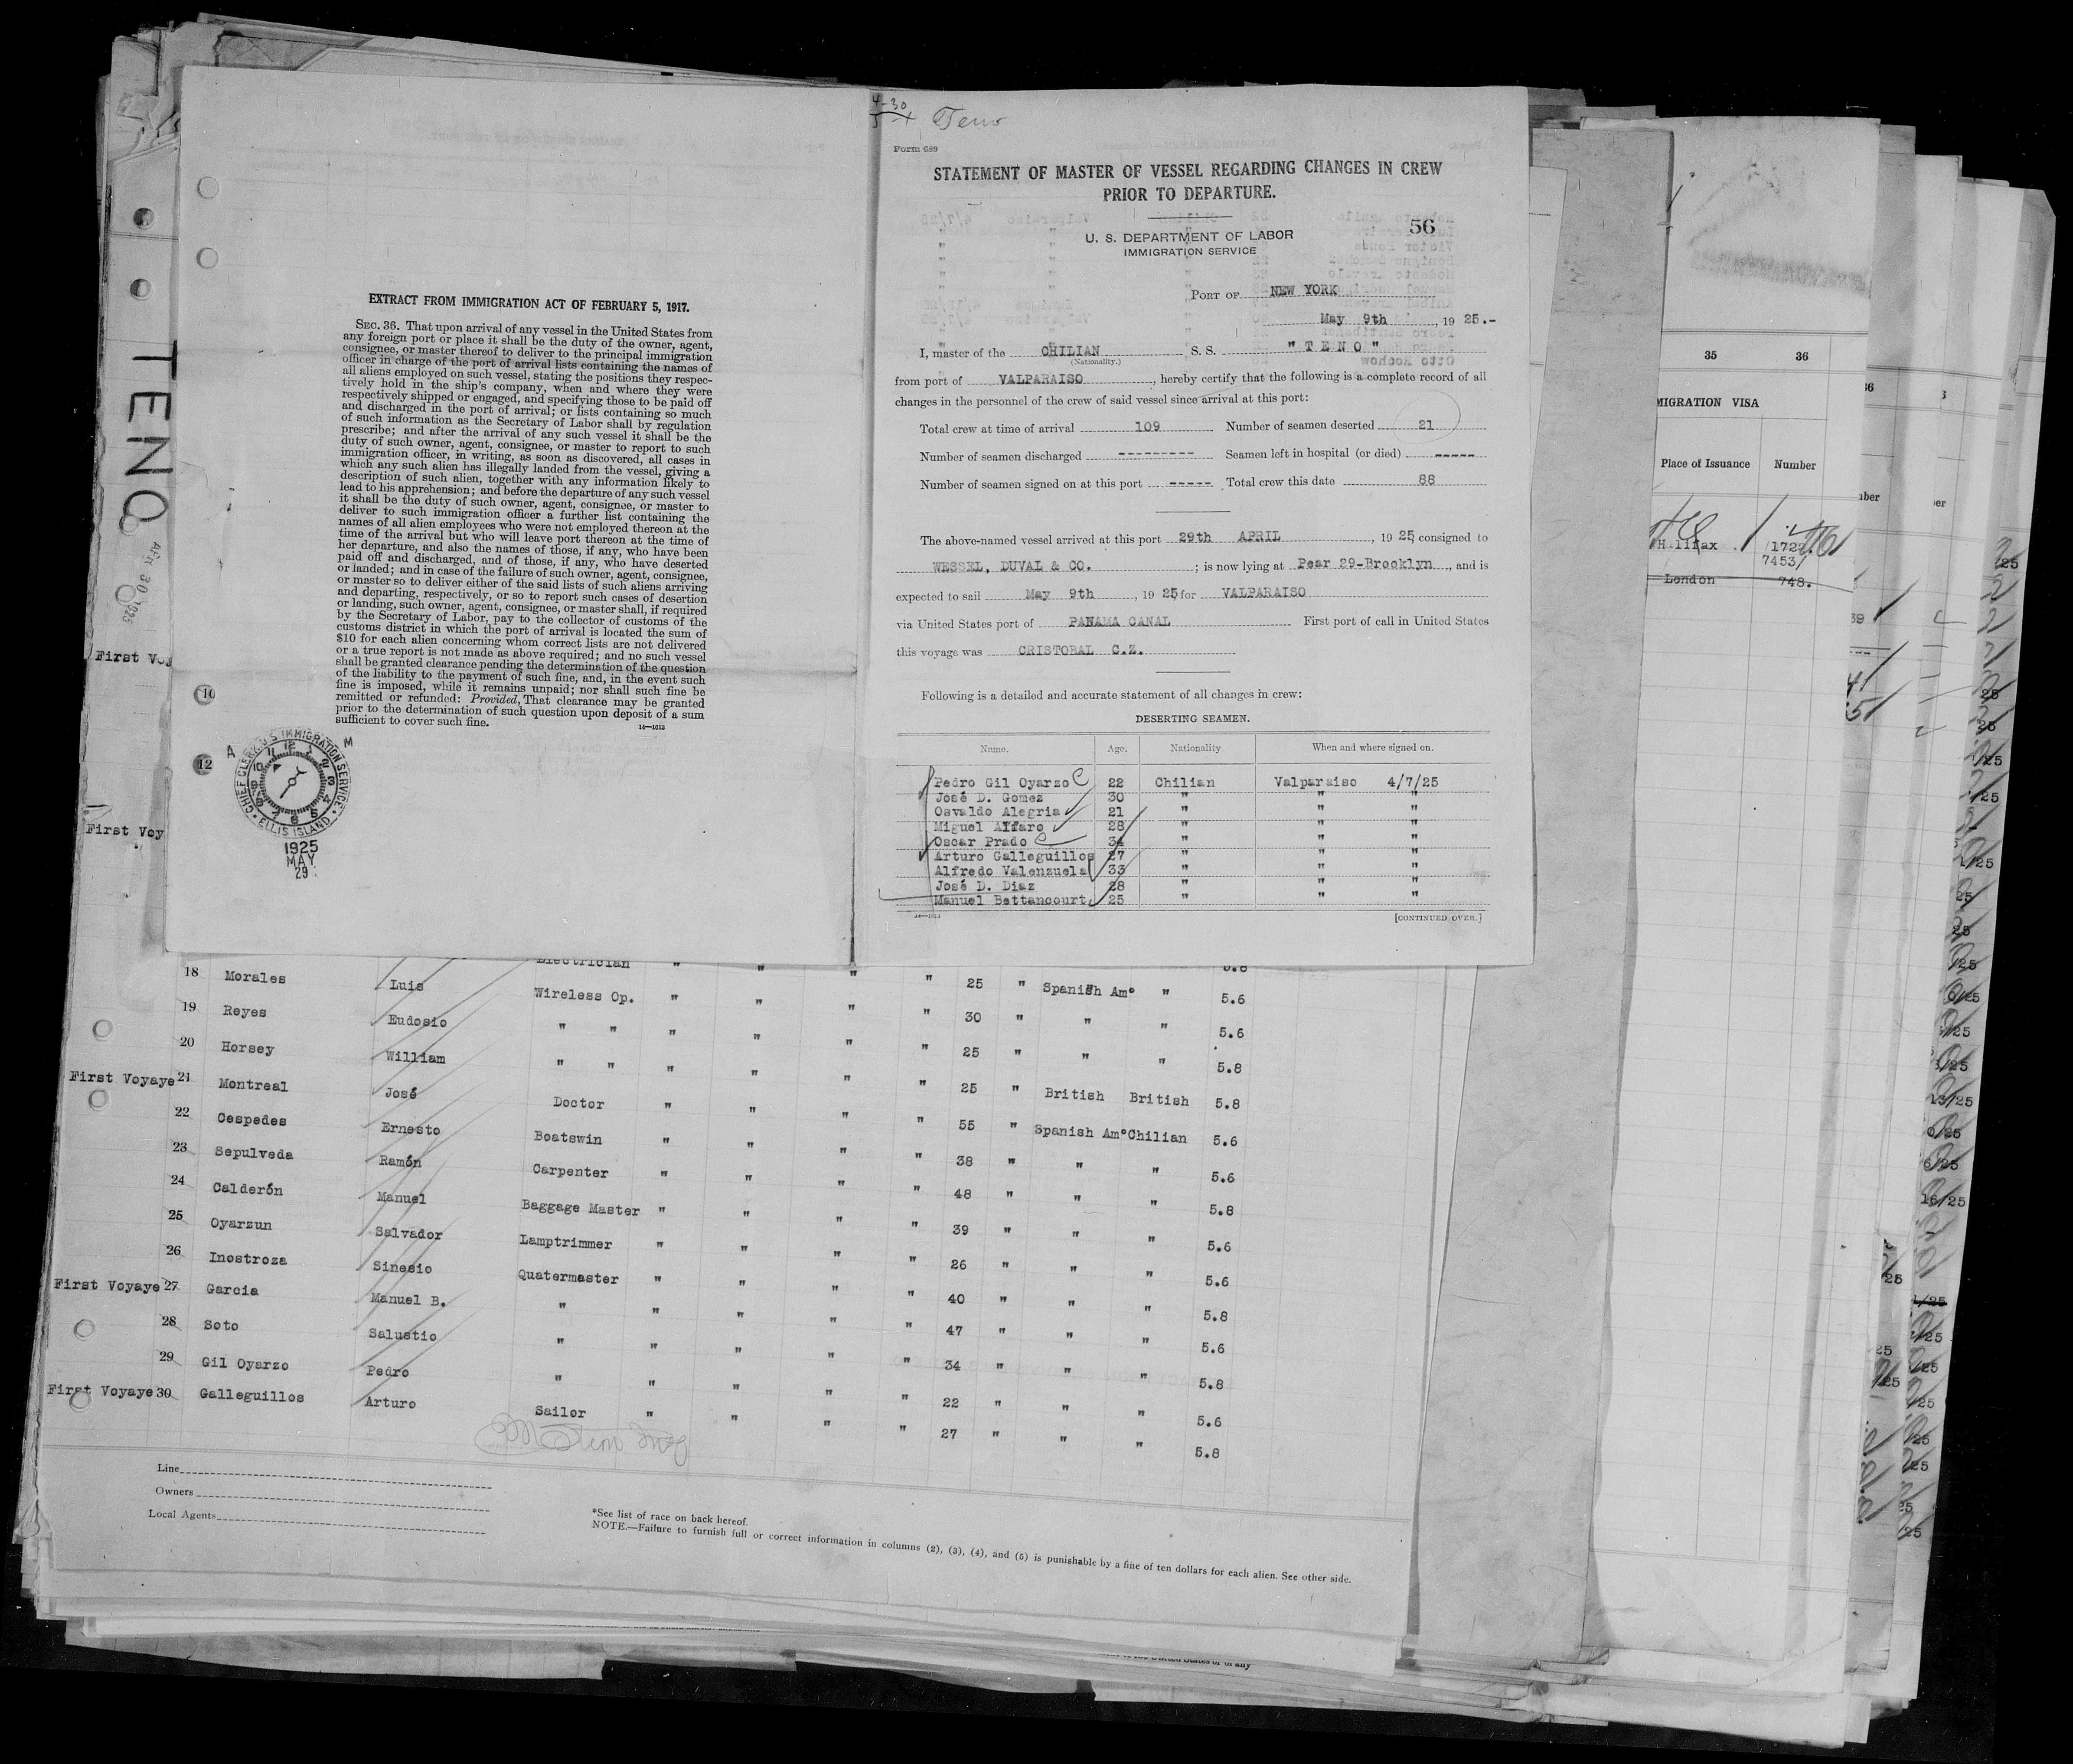 TENO
APR 30 1925
First Voy
First Voy
EXTRACT FROM IMMIGRATION ACT OF FEBRUARY 5, 1917.
SEC. 36. That upon arrival of any vessel in the United States from
any foreign port or place it shall be the duty of the owner, agent,
consignee, or master thereof to deliver to the principal immigration
officer in charge of the port of arrival lists containing the names of
all aliens employed on such vessel, stating the positions they respec-
tively hold in the ship's company, when and where they were
respectively shipped or engaged, and specifying those to be paid off
and discharged in the port of arrival; or lists containing so much
of such information as the Secretary of Labor shall by regulation
prescribe; and after the arrival of any such vessel it shall be the
duty of such owner, agent, consignee, or master to report to such
immigration officer, in writing, as soon as discovered, all cases in
which any such alien has illegally landed from the vessel, giving a
description of such alien, together with any information likely to
lead to his apprehension; and before the departure of any such vessel
it shall be the duty of such owner, agent, consignee, or master to
deliver to such immigration officer a further list containing the
names of all alien employees who were not employed thereon at the
time of the arrival but who will leave port thereon at the time of
her departure, and also the names of those, if any, who have been
paid off and discharged, and of those, if any, who have deserted
or landed; and in case of the failure of such owner, agent, consignee,
or master so to deliver either of the said lists of such aliens arriving
and departing, respectively, or so to report such cases of desertion
or landing, such owner, agent, consignee, or master shall, if required
by the Secretary of Labor, pay to the collector of customs of the
customs district in which the port of arrival is located the sum of
$10 for each alien concerning whom correct lists are not delivered
or a true report is not made as above required; and no such vessel
shall be granted clearance pending the determination of the question
of the liability to the payment of such fine, and, in the event such
fine is imposed, while it remains unpaid; nor shall such fine be
remitted or refunded: Provided, That clearance may be granted
prior to the determination of such question upon deposit of a sum
sufficient to cover such fine.
14—1613
10
12
A M
CHIEF CLERK U S IMMIGRATION SERVICE
12 1 2 3 4 5 6 7 8 9 10 11
ELLIS ISLAND
1925
MAY
29
4-30
Teno
Form 689
STATEMENT OF MASTER OF VESSEL REGARDING CHANGES IN CREW
PRIOR TO DEPARTURE.
56
U. S. DEPARTMENT OF LABOR
IMMIGRATION SERVICE
PORT OF NEW YORK
May 9th, 19 25.-
I, master of the CHILIAN S. S. "TENO"
(Nationality.)
from port of VALPARAISO, hereby certify that the following is a complete record of all
changes in the personnel of the crew of said vessel since arrival at this port:
Total crew at time of arrival 109 Number of seamen deserted 21
Number of seamen discharged --------- Seamen left in hospital (or died) -----
Number of seamen signed on at this port ----- Total crew this date 88
The above-named vessel arrived at this port 29th APRIL, 19 25 consigned to
WESSEL, DUVAL & CO. ; is now lying at Pear 29-Brooklyn, and is
expected to sail May 9th, 19 25 for VALPARAISO
via United States port of PANAMA CANAL First port of call in United States
this voyage was CRISTOBAL C.Z.
Following is a detailed and accurate statement of all changes in crew:
DESERTING SEAMEN.
Name. Age. Nationality When and where signed on.
Pedro Gil Oyarzo 22 Chilian Valparaiso 4/7/25
José D. Gomez 30 " " "
Osvaldo Alegria 21 " " "
Miguel Alfaro 28 " " "
Oscar Prado 34 " " "
Arturo Galleguillos 27 " " "
Alfredo Valenzuela 33 " " "
José D. Diaz 28 " " "
Manuel Bettancourt 25 " " "
14—1613
[CONTINUED OVER.]
Electrician " " " 5.6
18 Morales Luis Wireless Op. " " " " 25 " Spanish Am° " 5.6
19 Reyes Eudosio " " " " " " 30 " " " 5.6
20 Horsey William " " " " " " 25 " " " 5.8
First Voyaye 21 Montreal José Doctor " " " " 25 " British British 5.8
22 Cespedes Ernesto Boatswin " " " " 55 " Spanish Am° Chilian 5.6
23 Sepulveda Ramón Carpenter " " " " 38 " " " 5.6
24 Calderón Manuel Baggage Master " " " " 48 " " " 5.8
25 Oyarzun Salvador Lamptrimmer " " " " 39 " " " 5.6
26 Inostroza Sinesio Quatermaster " " " " 26 " " " 5.6
First Voyaye 27 Garcia Manuel B. " " " " " 40 " " " 5.8
28 Soto Salustio " " " " " 47 " " " 5.6
29 Gil Oyarzo Pedro " " " " " 34 " " " 5.8
First Voyaye 30 Galleguillos Arturo Sailor " " " " 22 " " " 5.6
27 " " " 5.8
Line
Owners
Local Agents
*See list of race on back hereof.
NOTE.—Failure to furnish full or correct information in columns (2), (3), (4), and (5) is punishable by a fine of ten dollars for each alien. See other side.
35 36
MIGRATION VISA
Place of Issuance Number
Halifax 1722
7453/
London 748.